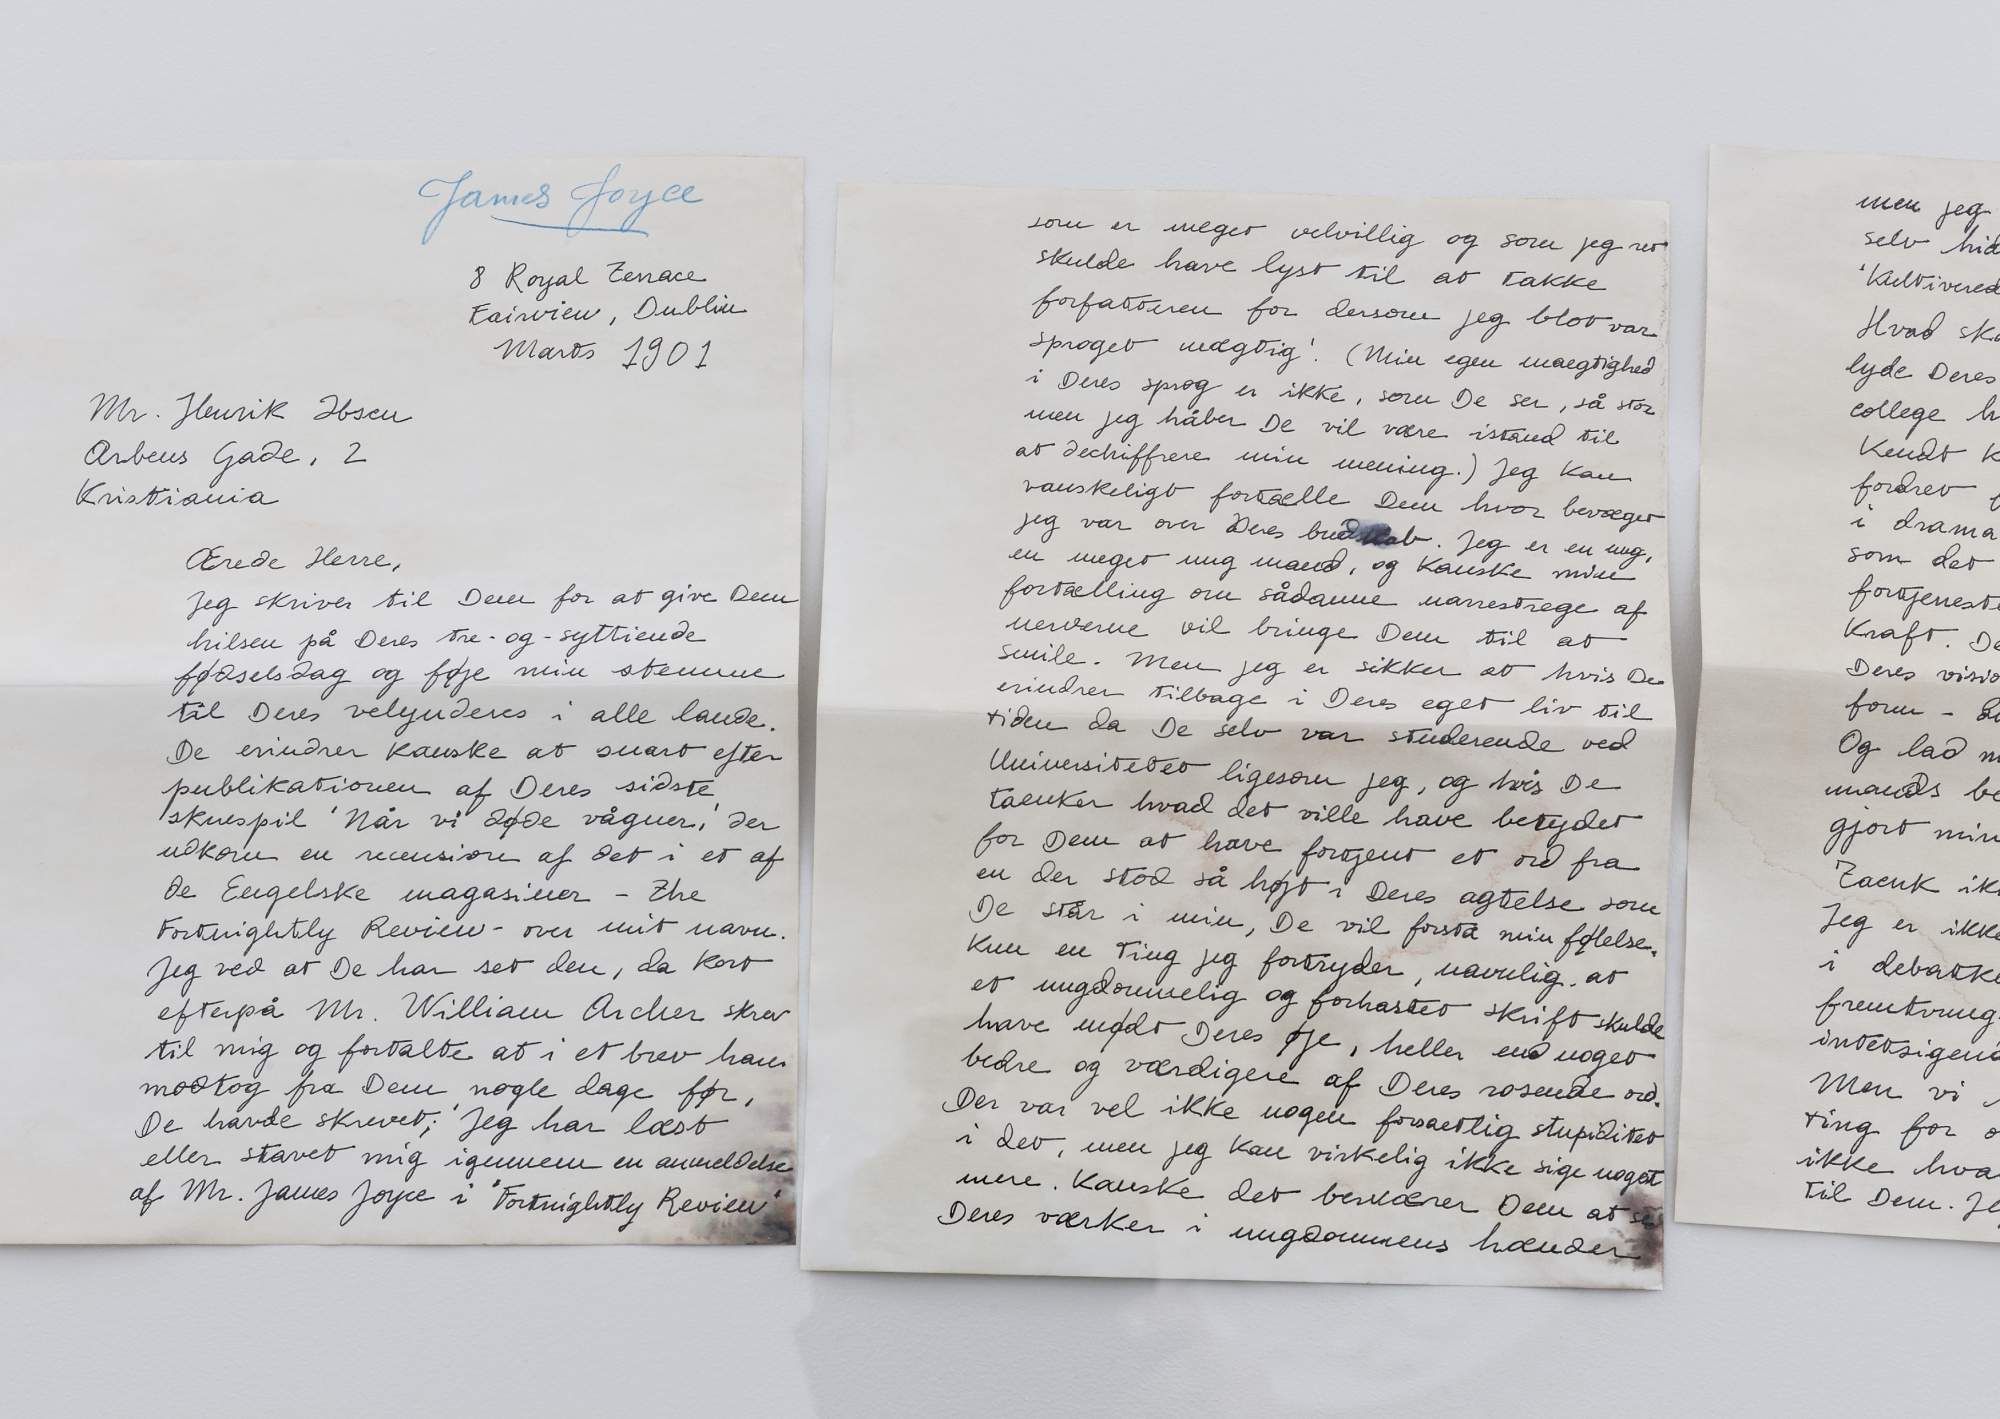 James Joyce
8 Royal Terrace
Fairview, Dublin
Marts 1901
Mr. Henrik Ibsen
Arbens Gade, 2
Kristiania
Ærede Herre,
Jeg skriver til Dem for at give Dem
hilsen på Deres tre-og-syttiende
fødselsdag og føje min stemme
til Deres velynderes i alle lande.
De erindrer kanske at snart efter
publikationen af Deres sidste
skuespil 'Når vi døde vågner,' der
udkom en recension af det i et af
de Engelske magasiner – The
Fortnightly Review – over mit navn.
Jeg ved at De har set den, da kort
efterpå Mr. William Archer skrev
til mig og fortalte at i et brev han
modtog fra Dem nogle dage før,
De havde skrevet; 'Jeg har læst
eller stavet mig igennem en anmeldelse
af Mr. James Joyce i 'Fortnightly Review'
som er meget velvillig og som jeg ret
skulde have lyst til at takke
forfatteren for dersom jeg blot var
sproget mægtig'. (Min egen maegtighed
i Deres sprog er ikke, som De ser, så stor
men jeg håber De vil være istand til
at dechiffrere min mening.) Jeg kan
vanskeligt fortælle Dem hvor bevæget
jeg var over Deres budskab. Jeg er en ung,
en meget ung mand, og kanske min
fortælling om sådanne narrestrege af
nerverne vil bringe Dem til at
smile. Men jeg er sikker at hvis De
erindrer tilbage i Deres eget liv til
tiden da De selv var studerende ved
Universitetet ligesom jeg, og hvis De
taenker hvad det ville have betydet
for Dem at have fortjent et ord fra
en der stod så højt i Deres agtelse som
De står i min, De vil forstå min følelse.
Kun en ting jeg fortryder, navnlig, at
et ungdommelig og forhastet skrift skulde
have mødt Deres øje, heller end noget
bedre og værdigere af Deres rosende ord.
Der var vel ikke nogen forsaetlig stupiditet
i det, men jeg kan virkelig ikke sige noget
mere. Kanske det besværer Dem at se
Deres værker i ungdommens hænder
men jeg
selv hid
'Kultivered
Hvad ska
lyde Deres
college h
Kendt k
fordret f
i drama
som det
fortjeneste
Kraft. De
Deres visio
form –
Og lad m
mands be
gjort min
Taenk ik
Jeg er ikke
i debatke
fremtvung
intetsigend
Men vi
ting for o
ikke hva
til Dem. Je